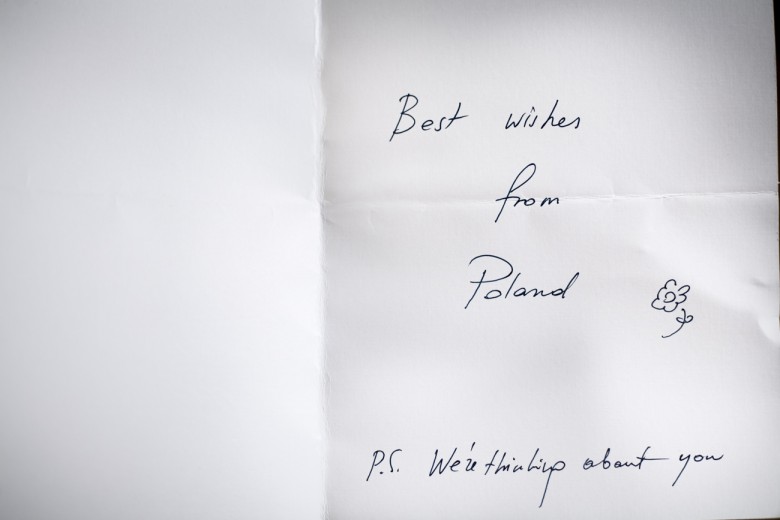 Best wishes
from
Poland
P.S. We're thinking about you